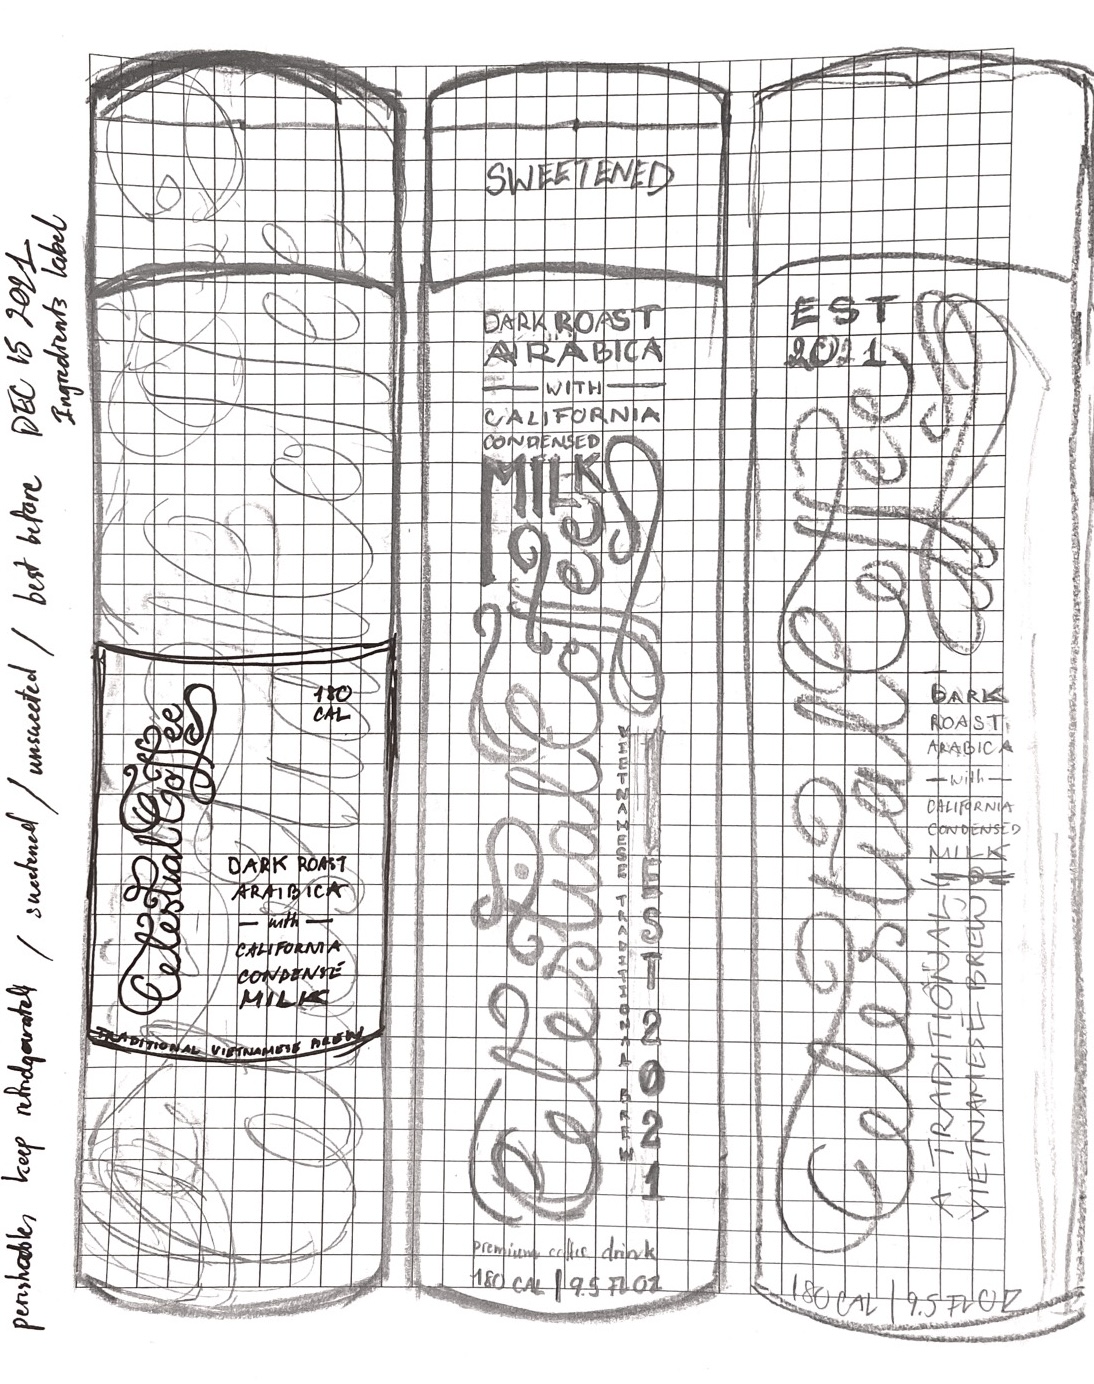 perishables, keep refridgerated / sweetened / unsweeted / best before DEC 15 2021
Ingredients label
Celestial Coffee
180
CAL
DARK ROAST
ARAIBICA
— with —
CALIFORNIA
CONDENSE
MILK
TRADITIONAL VIETNAMESE BREW
SWEETENED
DARK ROAST
ARABICA
— WITH —
CALIFORNIA
CONDENSED
MILK
Celestial Coffee
EST 2021
premium coffee drink
180 CAL | 9.5 FL OZ
EST
2021
Celestial Coffee
DARK
ROAST
ARABICA
— with —
CALIFORNIA
CONDENSED
MILK
A TRADITIONAL
VIETNAMESE BREW
180 CAL | 9.5 FL OZ